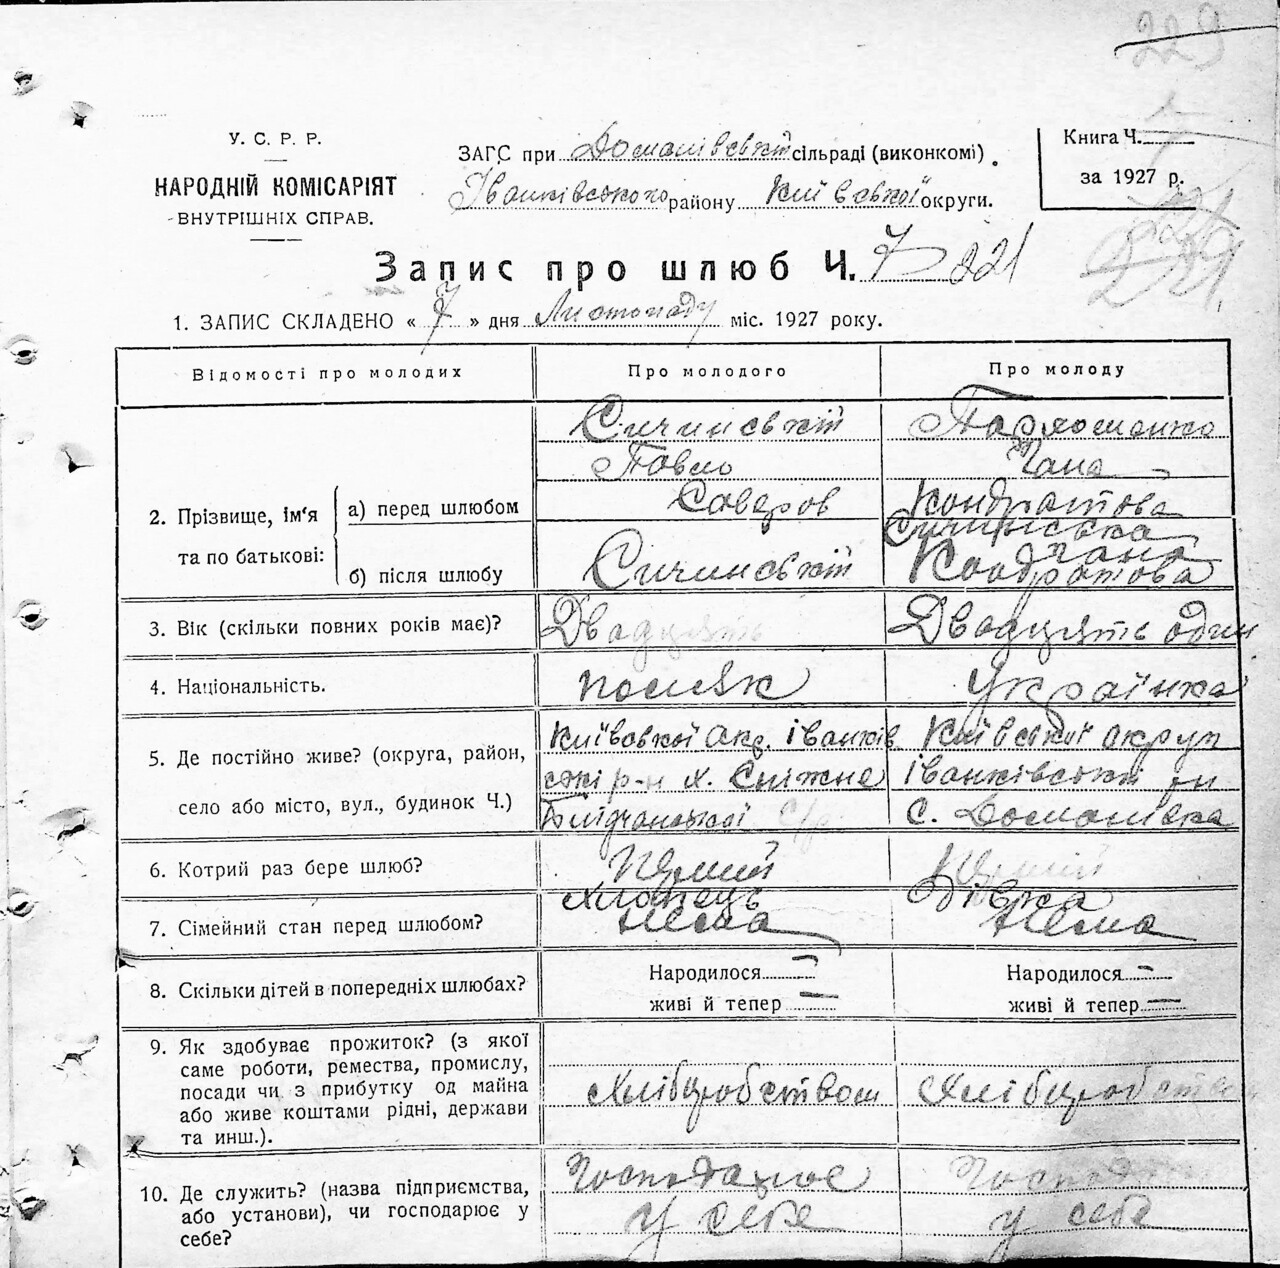 229
У. С. Р. Р.
НАРОДНІЙ КОМІСАРІЯТ
ВНУТРІШНІХ СПРАВ.
ЗАГС при Доманівській сільраді (виконкомі)
Іванківського району Київської округи.
Книга Ч.
за 1927 р.
Запис про шлюб Ч. 7 221
1. ЗАПИС СКЛАДЕНО « 7 » дня Листопаду міс. 1927 року.
Відомості про молодих Про молодого Про молоду
2. Прізвище, ім'я та по батькові:
а) перед шлюбом
Сичинський
Павло
Саверов
Пархоменко
Гана
Кондратова
б) після шлюбу
Сичинський
Сичинська
Гана
Кондратова
3. Вік (скільки повних років має)? Двадцять Двадцять один
4. Національність. поляк Українка
5. Де постійно живе? (округа, район,
село або місто, вул., будинок Ч.)
Київської окр. Іванків
ські р-н х. Сніжне
с/р.
Київської округи
Іванківській рн
с. Доманівка
6. Котрий раз бере шлюб? Перший Перший
7. Сімейний стан перед шлюбом?
Хлопець
нема
Дівка
нема
8. Скільки дітей в попередніх шлюбах?
Народилося — Народилося —
живі й тепер — живі й тепер —
9. Як здобуває прожиток? (з якої
саме роботи, ремества, промислу,
посади чи з прибутку од майна
або живе коштами рідні, держави
та инш.).
Хліборобством Хліборобством
10. Де служить? (назва підприємства,
або установи), чи господарює у
себе?
Господарює
у себе
у себе